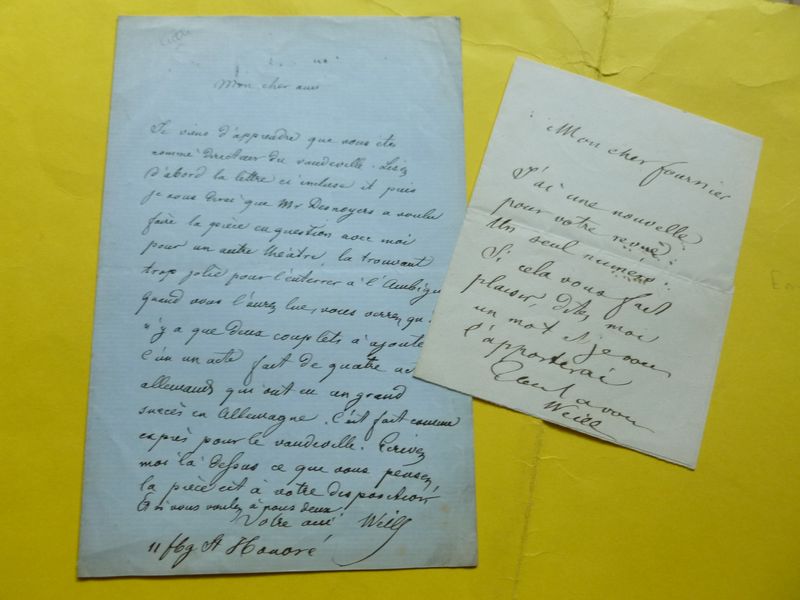 Mon cher ami
Je viens d'apprendre que vous êtes
nommé directeur du vaudeville. Lisez
d'abord la lettre ci incluse et puis
je vous dirai que Mr Desnoyers a voulu
faire la pièce en question avec moi
pour un autre théâtre, la trouvant
trop jolie pour l'enterrer à l'Ambigu
quand vous l'aurez lue, vous verrez qu'il
n'y a que deux couplets à ajouter
C'est un acte fait de quatre actes
allemands qui ont eu un grand
succès en Allemagne. C'est fait comme
exprès pour le vaudeville. Écrivez
moi là dessus ce que vous pensez,
la pièce est à votre disposition
Et si vous voulez à nous deux
Votre ami Weill
11 fbg St Honoré
Mon cher fournier
J'ai une nouvelle
pour votre revue.
Un seul numéro.
Si cela vous fait
plaisir dites moi
un mot et je vous
l'apporterai
Tout à vous
Weill